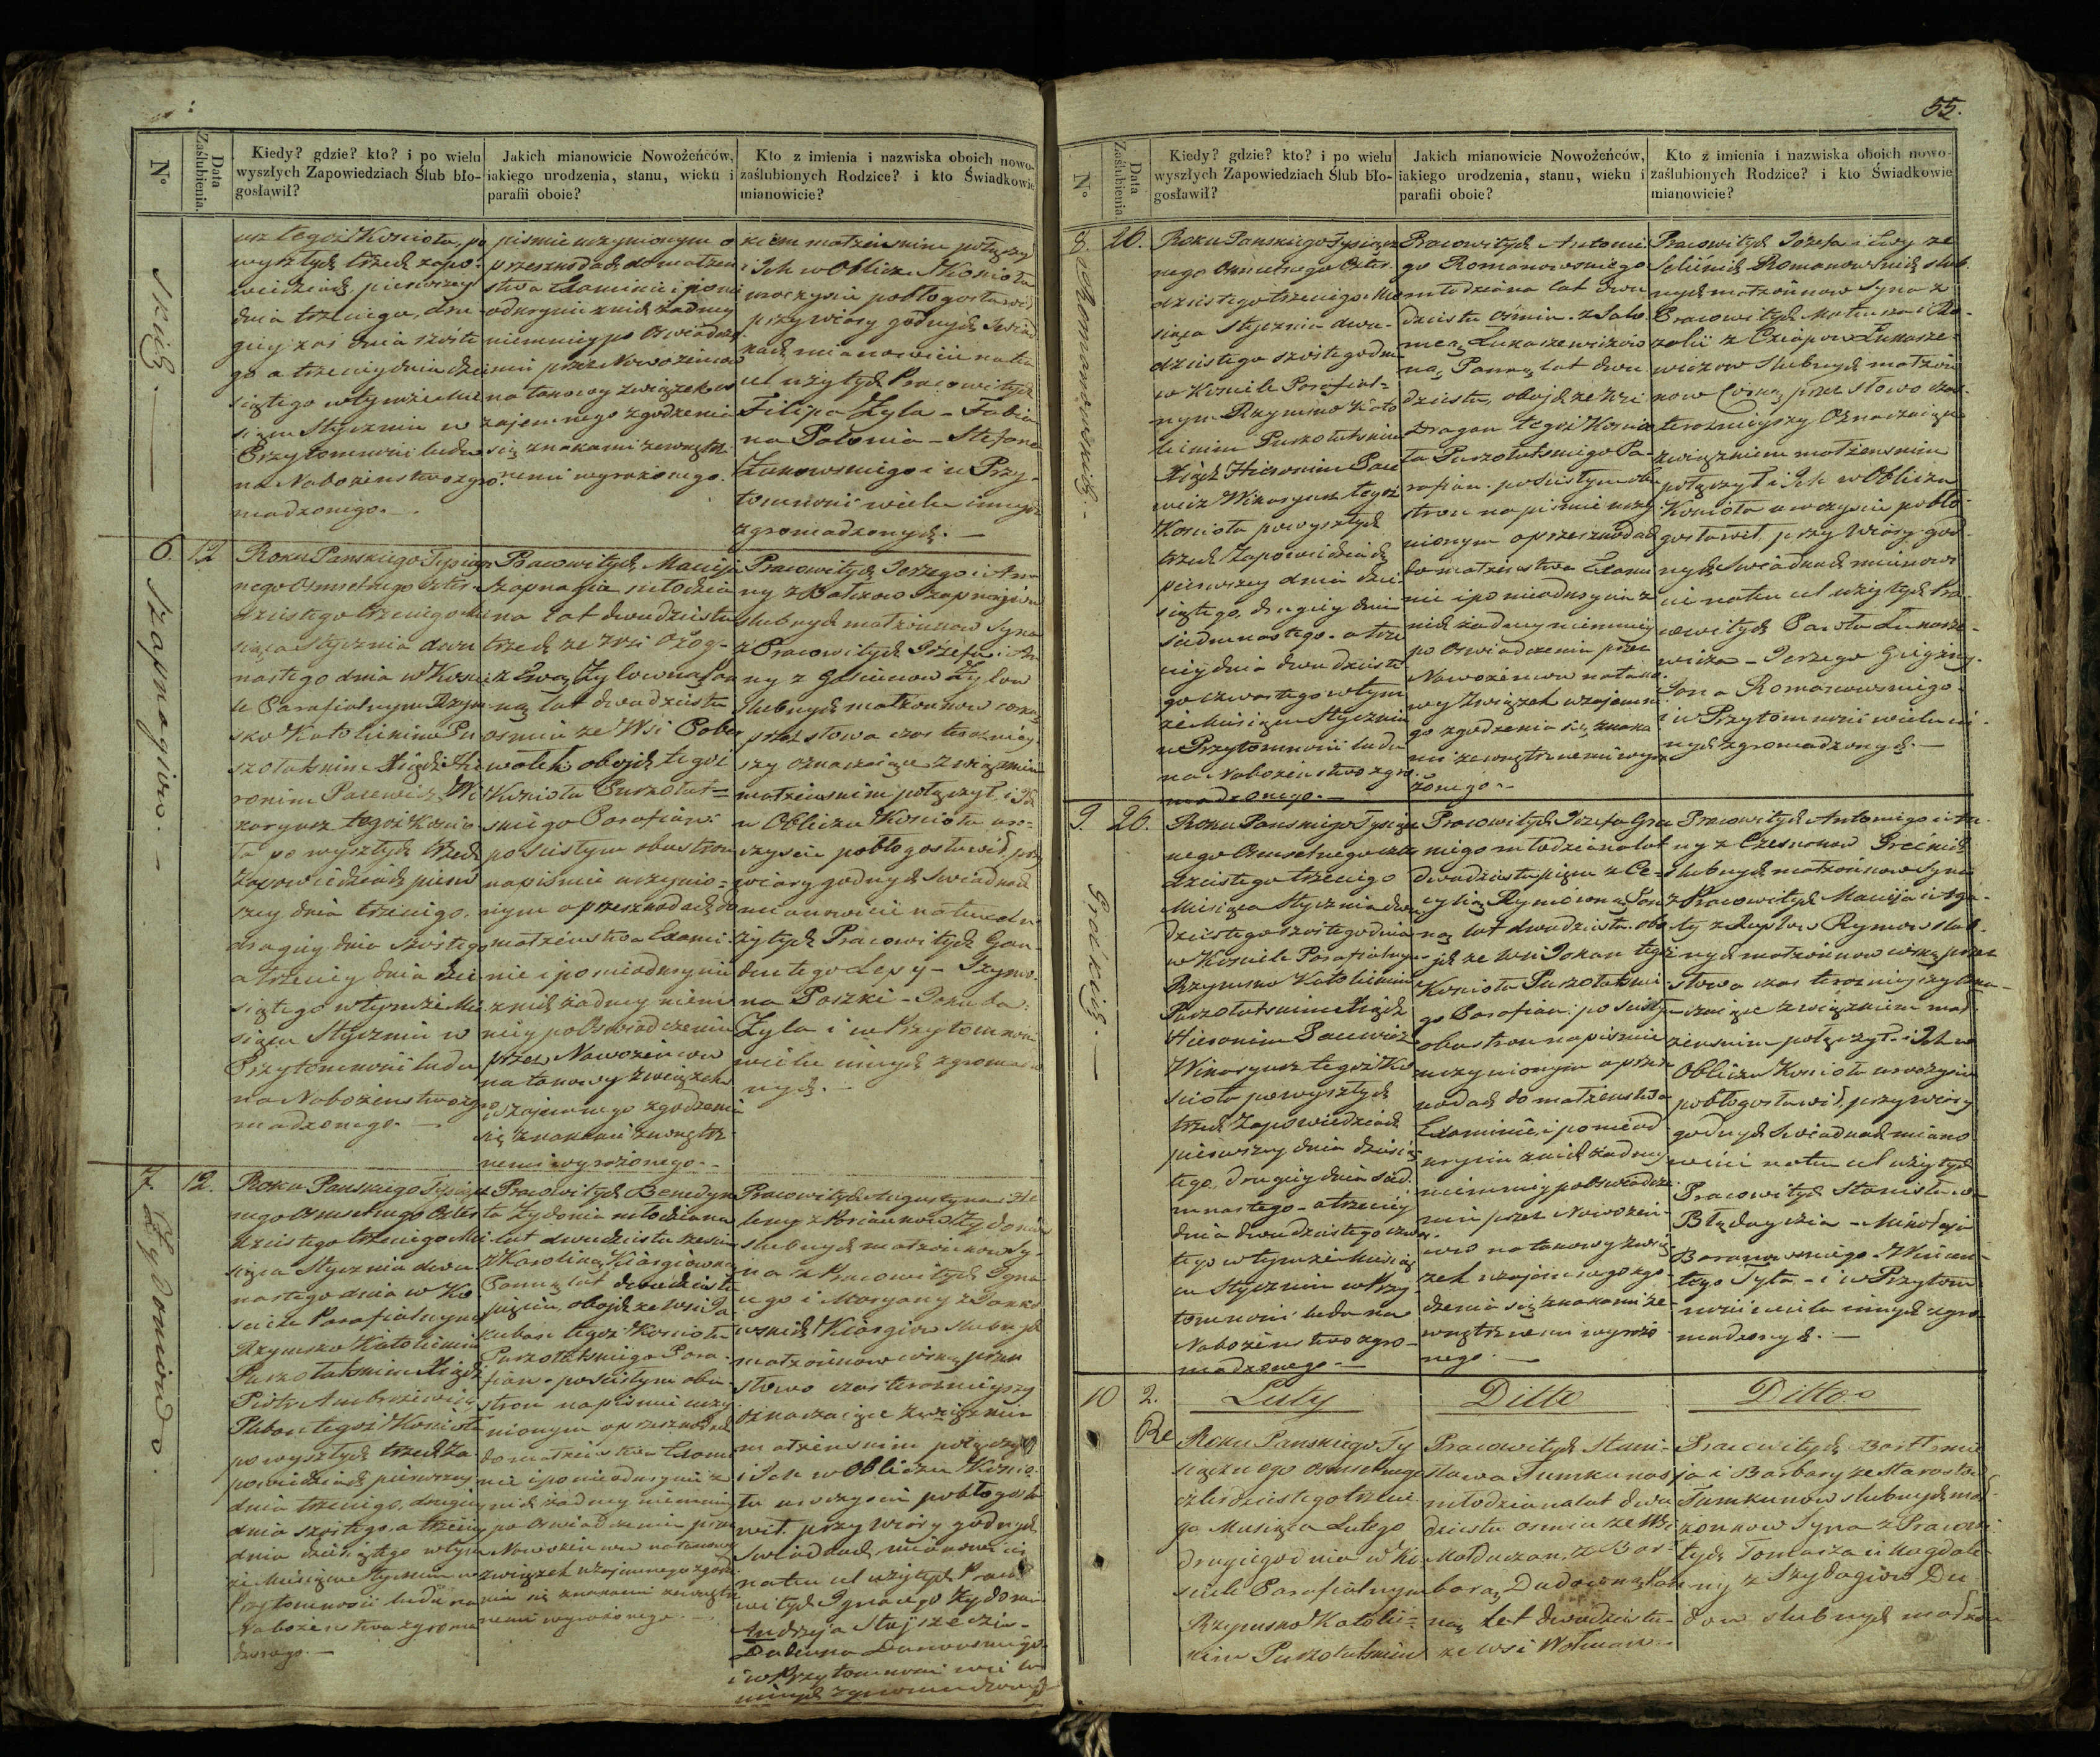 55.
N°
Data Zaślubienia.
Kiedy? gdzie? kto? i po wielu
wyszłych Zapowiedziach Ślub bło-
gosławił?
Jakich mianowicie Nowożeńców,
iakiego urodzenia, stanu, wieku i
parafii oboie?
Kto z imienia i nazwiska oboich nowo-
zaślubionych Rodzice? i kto Świadkowie
mianowicie?
wyszłych trzech zapo-
wiedziach, pierwszey
dnia trzeciego, dru-
giey zaś dnia szóste
go a trzeciey dnia dzie
siątego w tymże Mie
siącu Styczniu w
Przytomności ludu
na Nabożenstwo zgro
madzonego.
pismie uczynionym o
przeszkodach do małżen
stwa Examinie i poni
odkryciu z nich żadney
niemniey po oswiadcze
niu przez Nowożencow
na takowy związek w
zajemnego zgodzenia
się znakami zewnętrz
nemi wyrażonego.
kiem małżeńskim połączył
i Ich w Obliczu Kościoła
uroczyście pobłogosławił
przy wiary godnych Swiad
kach mianowicie na to
użytych Pracowitych
Filipa Żyla - Fabia
na Patonia - Stefana
Żukowskiego i w Przy-
tomności wielu innych
zgromadzonych. —
6. 12 Szapnagiow.
Roku Panskiego Tysiącz
nego Osmsetnego Czter-
dziestego trzeciego Mie
siąca Stycznia dwu
nastego dnia w Koscie
le Parafialnym Rzym
sko Katolickim Pu
szołatskim Xiądz Hie
ronim Pacewicz Wi
karyusz tegoż Koscio
ła po wyszłych trzech
Zapowiedziach pierw
szey dnia trzeciego,
drugiey dnia szóstego
a trzeciey dnia dzie
siątego w tymże Mie
siącu Styczniu w
Przytomności ludu
na Nabożenstwo zgro
madzonego. —
Pracowitych Macieja
Szapnagia młodzia
na lat dwudziestu
trzech ze Wsi Ożog-
z Ewą Żylowną Pan
ną lat dwadziestu
osmiu ze Wsi Pobo
wolek obojch tegoż
Kościoła Puszołat=
skiego Parafian
po scisłym obustron
na pismie uczynio=
nym o przeszkodach do
małżenstwa Exami-
nie i po nieodkryciu
z nich żadney niem
niey po Oswiadczeniu
przez Nowożencow
na takowy związek
wzajemnego zgodzenia
się znakami zewnętrz
nemi wyrażonego. -
Pracowitych Jerzego i An
ny z Szapnagiow
slubnych małżonkow Syna
z Pracowitych Józefa i An
ny z Żylow
slubnych małżonkow corką
przez słowa czas teraznieyszy
oznaczaiące związkiem
małżenskim połączył i Ich
w Obliczu Kościoła uro-
czyscie pobłogosławił przy
wiary godnych Swiadkach
mianowicie na to u
żytych Pracowitych Gau
dentego Lepy - Szymo
na Paszki - Jakuba
Żyla i w Przytomnosci
wielu innych zgromadzo
nych. —
7. 12. Żydoniow.
Roku Panskiego Tysiącz
nego Osmsetnego Czter
dziestego trzeciego Mie
siąca Stycznia dwu
nastego dnia w Ko
sciele Parafialnym
Rzymsko Katolickim
Puszołatskim Xiądz
Piotr Ambrożewicz
Pleban tegoż Kościoła
po wyszłych trzech Za
powiedziach pierwszey
dnia trzeciego, drugiey
dnia szóstego, a trzeciey
dnia dziesiątego w tym
że Miesiącu Styczniu w
Przytomności ludu na
Nabożenstwo zgroma
dzonego. —
Pracowitych Benedyk
ta Żydonia młodziana
lat dwudziestu sześciu
z Karoliną Kiargiowną
Panną lat dwudziestu
pięciu, obojch ze Wsi Ja
kuban tegoż Kościoła
Puszołatskiego Para-
fian - po scisłym obu-
stron na pismie uczy
nionym o przeszkodach
do małżenstwa Exami
nie i po nieodkryciu z
nich żadney niemniey
po Oswiadczeniu przez
Nowożencow na takowy
związek wzajemnego zgodze
nia się znakami zewnętrz
nemi wyrażonego. —
Pracowitych Augustyna i He
leny z Żydoniow
slubnych małżonkow Sy-
na z Pracowitych Igna
cego i Maryany z Jank
Kiargiow slubnych
małżonkow corką przez
słowa czas teraznieyszy
oznaczaiące związkiem
małżenskim połączył
i Ich w Obliczu Koscio
ła uroczyscie pobłogosła
wił przy wiary godnych
Swiadkach mianowicie
na to użytych Praco
witych Ignacego Żydonia
Andrzeja
i w Przytomnosci wielu
innych zgromadzonych
8. 26. Romanowskich. -
Roku Panskiego Tysiącz
nego Osmsetnego Czter-
dziestego trzeciego Mie
siąca Stycznia dwu-
dziestego szóstego dnia
w Kosciele Parafial=
nym Rzymsko Kato
lickim Puszołatskim
Xiądz Hieronim Pace
wicz Wikaryusz tegoż
Kościoła po wyszłych
trzech Zapowiedziach
pierwszey dnia dzie
siątego, drugiey dnia
siedmnastego - a trze
ciey dnia dwudzieste
go czwartego w tym
że Miesiącu Styczniu
w Przytomności ludu
na Nabożenstwo zgro
madzonego. —
Pracowitych Antonie
go Romanowskiego
młodziana lat dwu
dziestu ośmiu - z Salo
meą Łukaszewiczow
ną Panną lat dwu
dziestu, obojch ze Wsi
Dragan tegoż Koscio
ła Puszołatskiego Pa-
rafian - po scisłym obu
stron na pismie uczy
nionym o przeszkodach
do małzenstwa Exami
nie i po nieodkryciu z
nich żadney niemniey
po Oswiadczeniu przez
Nowożencow na tako
wy Związek wzajemne
go zgodzenia się znaka
mi zewnętrznemi wyra
żonego. -
Pracowitych Józefa i Ewy ze
Romanowskich slub
nych małżonkow Syna z
Pracowitych Mateusza i Ro-
zalii z Łukasze-
wiczow slubnych małżon
kow Corką, przez słowa czas
teraznieyszy Oznaczaiące
związkiem małżenskim
połączył i Ich w Obliczu
Kościoła uroczyscie pobło-
gosławił, przy Wiary god-
nych Swiadkach mianowi
cie na to użytych Pra-
cowitych Pawła Łukasze-
wicza - Jerzego
Jona Romanowskiego
i w Przytomności wielu in-
nych zgromadzonych. —
9. 26. Grockich. —
Roku Panskiego Tysiącz
nego Osmsetnego czter
dziestego trzeciego
Miesiąca Stycznia dwu
dziestego szóstego dnia
w Kosciele Parafialnym
Rzymsko Katolickim
Puszołatskim Xiądz
Hieronim Pacewicz
Wikaryusz tegoż Ko
scioła po wyszłych
trzech Zapowiedziach
pierwszey dnia dziesią
tego, drugiey dnia sied
mnastego - a trzeciey
dnia dwudziestego czwar
tego w tymże Miesią
cu Styczniu w Przy-
tomności ludu na
Nabożenstwo zgro-
madzonego —
Pracowitych Józefa Gro
ckiego młodziana lat
dwudziestu pięciu z Ce-
cylią Rymowną Pan
ną lat dwudziestu - obo
jch ze Wsi Jokan tegoż
Kościoła Puszołatskie
go Parafian: po scisłym
obustron na pismie
uczynionym o przesz
kodach do małzenstwa
Examinie, i po nieod
kryciu z nich żadney
niemniey po Oswiadcze
niu przez Nowożen-
cow na takowy Zwią-
zek wzajemnego zgo
dzenia się znakami ze
wnętrznemi wyrażo
nego. —
Pracowitych Antoniego i An-
ny z Czesnakow Grockich
slubnych małżonkow Syna
z Pracowitych Macieja i Aga-
ty z Rymow slub-
nych małżonkow corką przez
słowa czas teraznieyszy ozna-
czaiące związkiem mał-
żenskim połączył i Ich w
Obliczu Kościoła uroczyscie
pobłogosławił, przy wiary
godnych Swiadkach miano
wicie na to użytych
Pracowitych Stanisława
- Mikołaja
Baranowskiego - Wincen-
tego Tyla - i w Przytom
ności wielu innych zgro-
madzonych. —
10 2. Luty Ditto Ditto
Roku Panskiego Ty
siącznego Osmsetnego
czterdziestego trzecie
go Miesiąca Lutego
drugiego dnia w Ko
sciele Parafialnym
Rzymsko Katolic=
kim Puszołatskim
Pracowitych Stani-
sława Tumkunas
młodziana lat dwu
dziestu osmiu ze Wsi
z Bar-
barą Dudowną Pan
ną Lat dwudziestu
ze Wsi
Pracowitych Bartłomie
ja i Barbary ze
Tumkunow slubnych mał
żonkow Syna z Pracowi
tych Tomasza i Magdale
ny z Szydagiow Du-
dow slubnych małżon